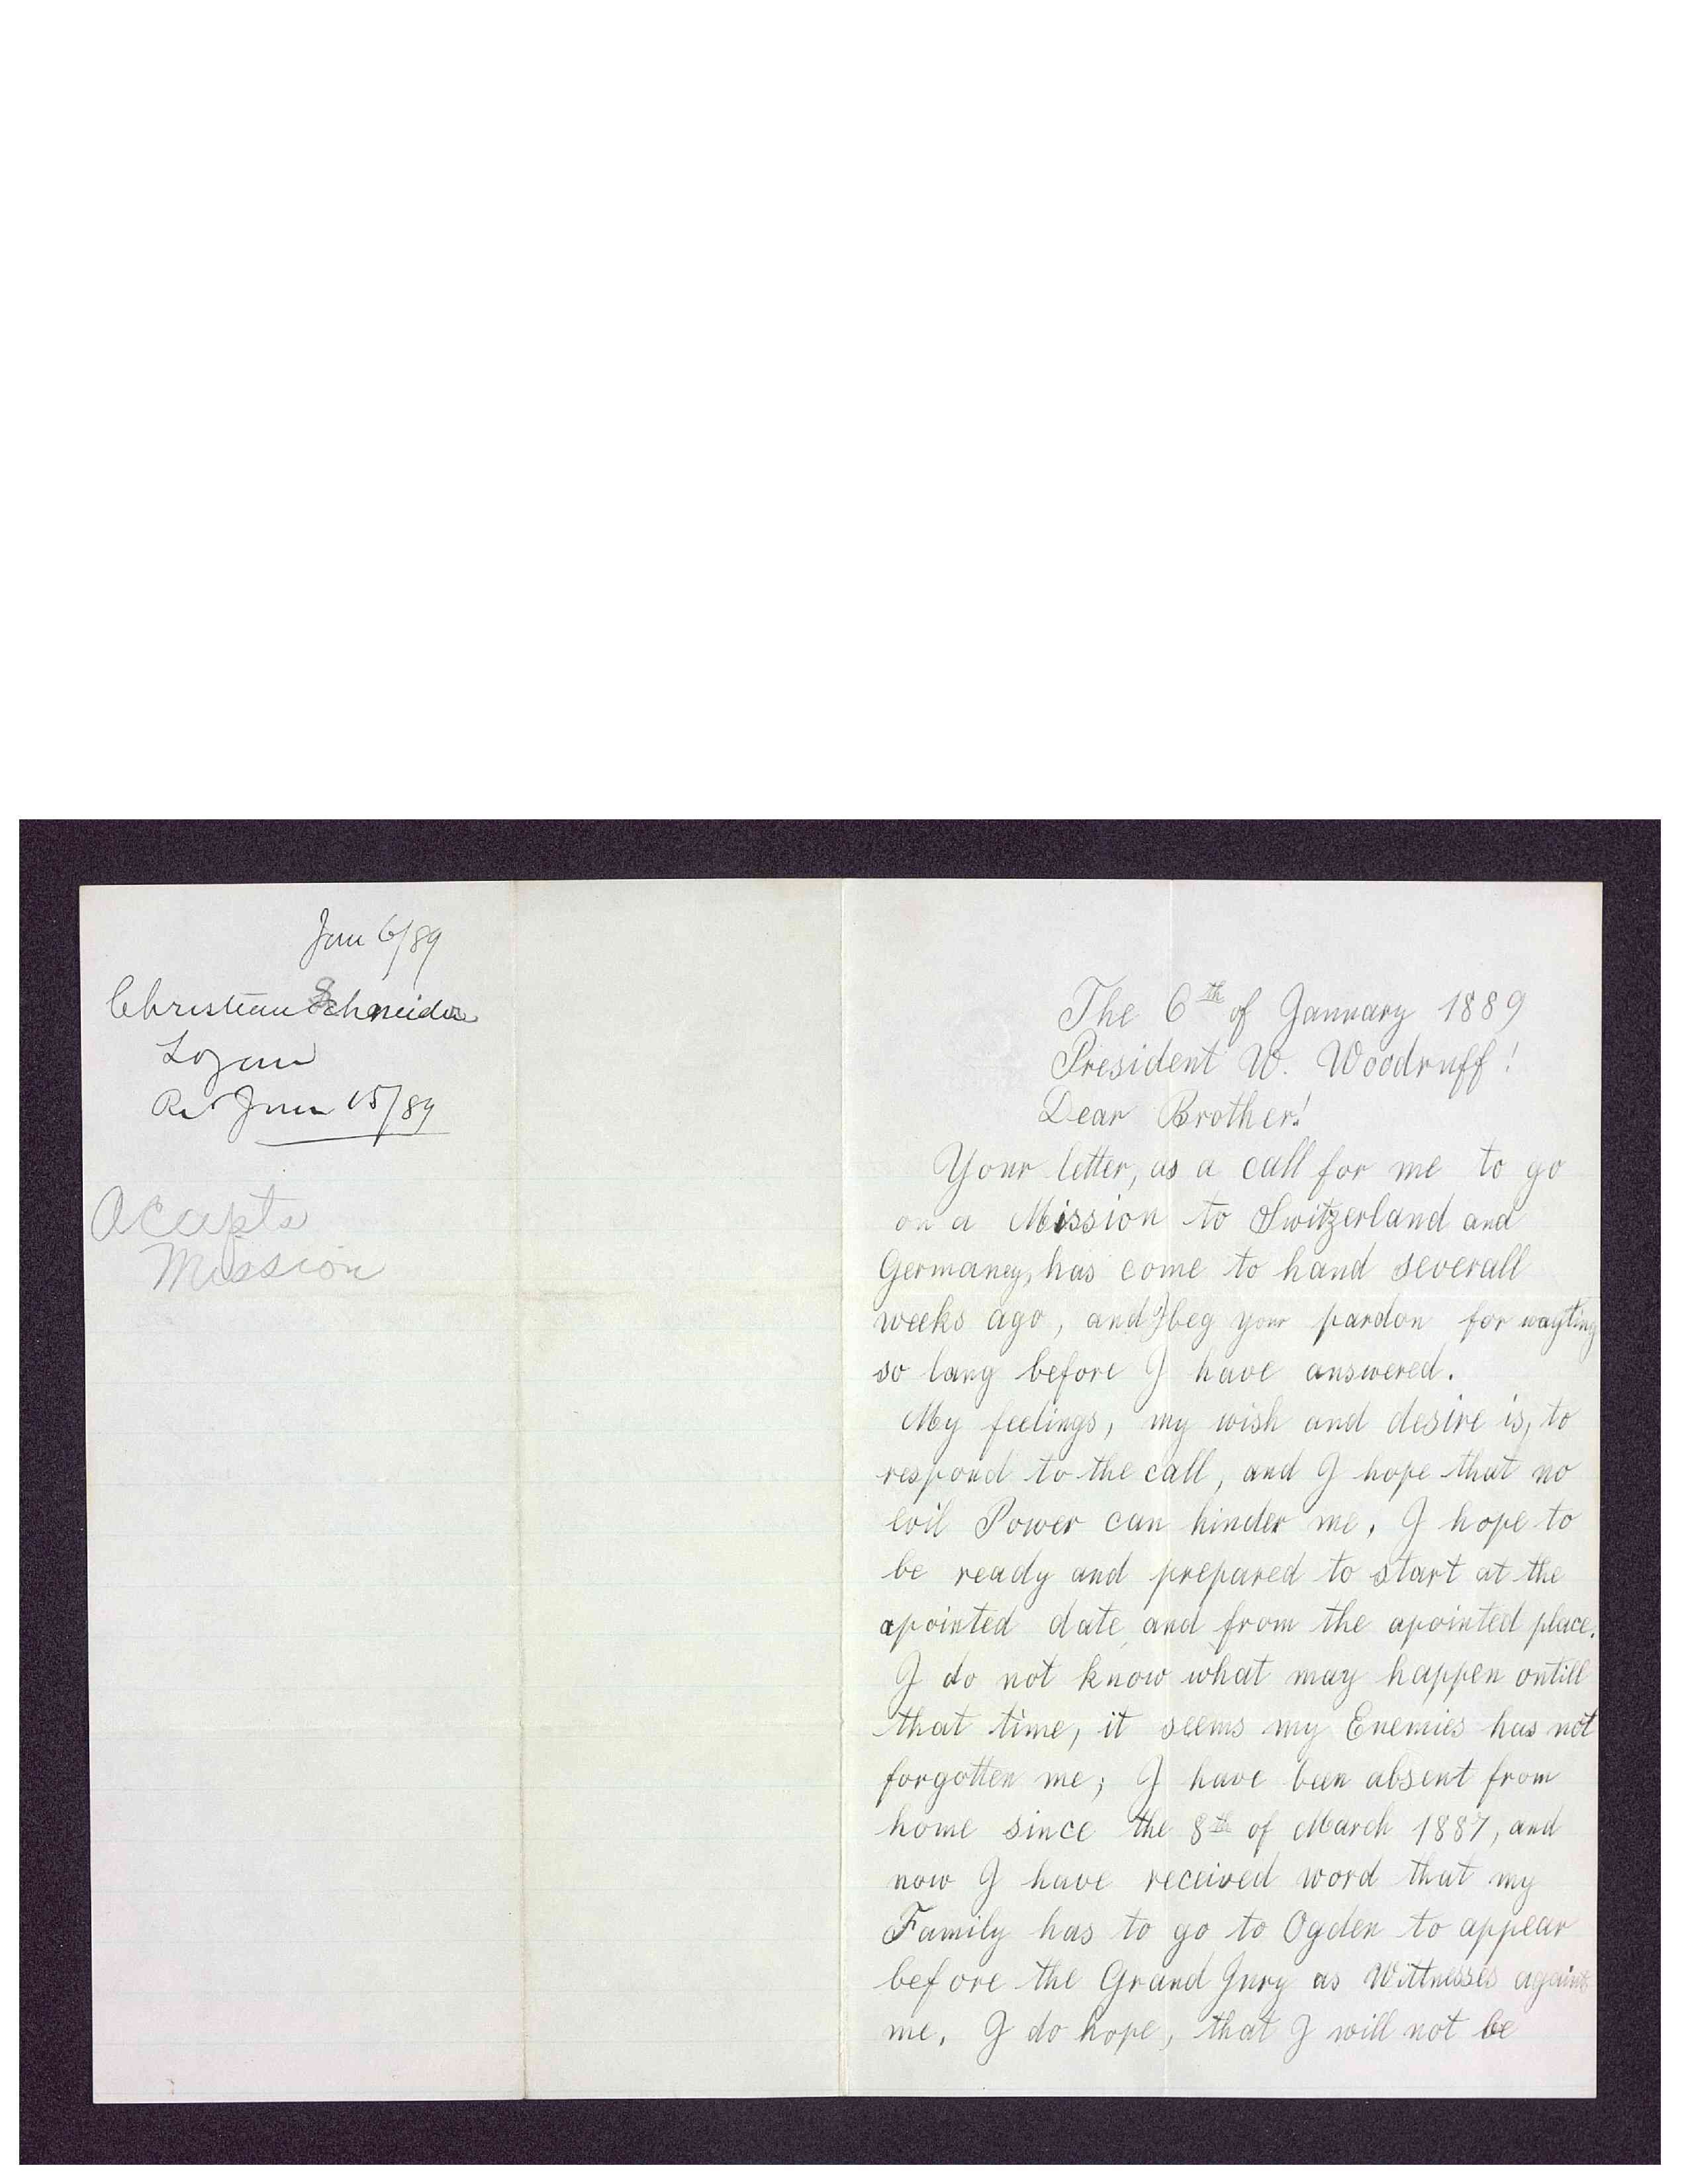 Jan 6/89
Christian Schneider
Logan
Re Jan 15/89
Accepts
Mission
The 6th of January 1889
President W. Woodruff!
Dear Brother!
Your letter, as a call for me to go
on a Mission to Switzerland and
Germaney, has come to hand severall
weeks ago, and I beg your pardon for wayting
so lang before I have answered.
My feelings, my wish and desire is, to
respond to the call, and I hope that no
evil Power can hinder me, I hope to
be ready and prepared to start at the
apointed date and from the apointed place.
I do not know what may happen ontill
that time, it seems my Enemies has not
forgotten me; I have been absent from
home since the 8th of March 1887, and
now I have received word that my
Family has to go to Ogden to appear
before the Grand Jury as Wittnesses against
me. I do hope, that I will not be